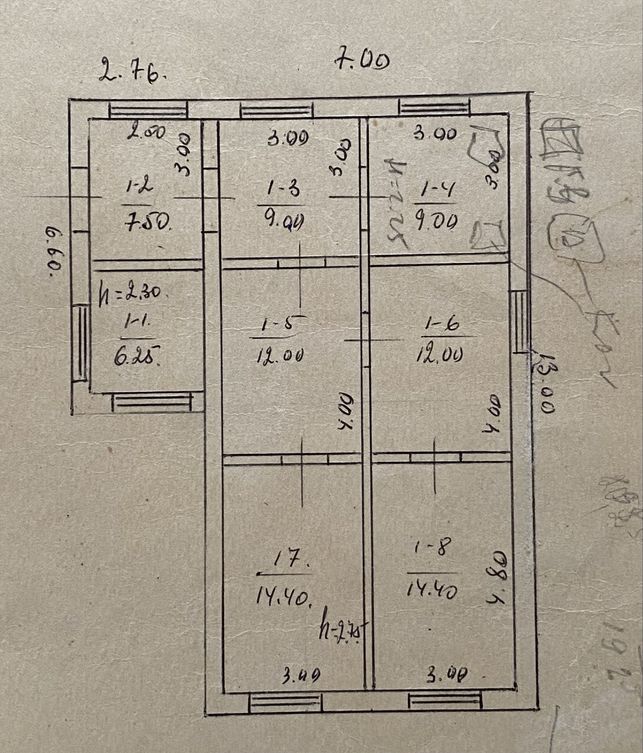 2.76.
7.00
2.50
3.00
3.00
3.00
3.00
3.00
1-2
7.50.
1-3
9.00
h=2.25
1-4
9.00
6.60.
h=2.30.
1-1.
6.25.
1-5
12.00
4.00
1-6
12.00
4.00
13.00
17.
14.40.
h=2.75
3.00
1-8
14.40
4.80
3.00